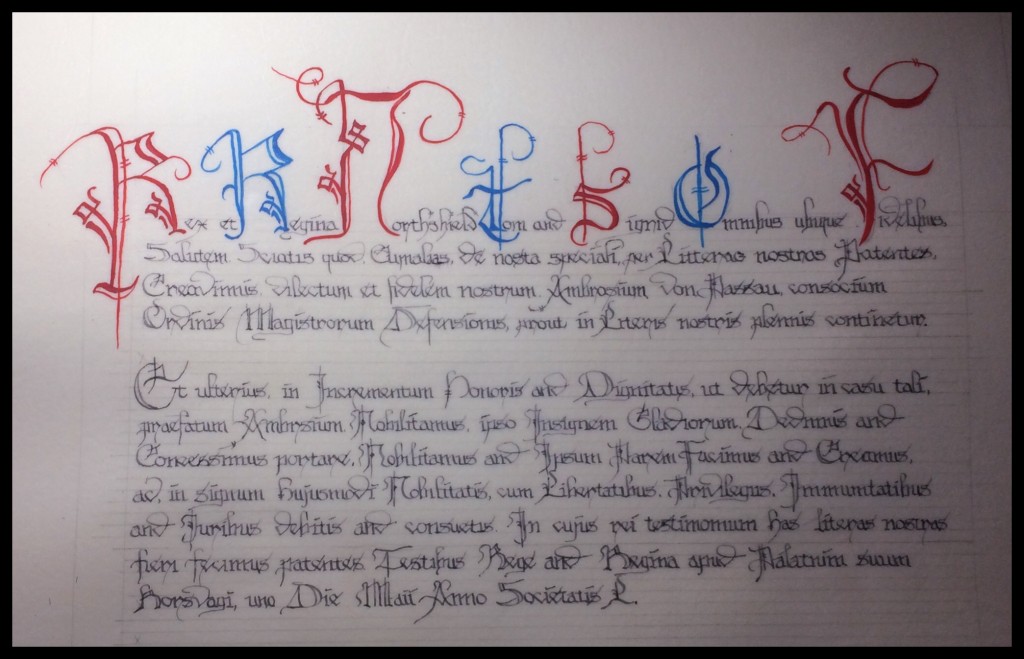 Rex et Regina Northshield Dom and Signid Omnibus ubique Fidelibus,
Salutem Sciatis quod, Aliqualias, de nosta speciali, per Litteras nostras Patentes,
Creavimus, dilectum et fidelem nostrum, Ambrosium von Passau, consocium
Ordinis Magistrorum Defensionis, prout in Literis nostris plennis continetur.
Et ulterius, in Incrementum Honoris and Dignitatis, ut debetur in casu tali,
praefatum Ambrsium, Nobilitamus, ipso Insignem Gladiorum, Dedimus and
Concessimus portare, Nobilitamus and Ipsum Parem Facimus and Creamus,
ac, in signum hujusmodi Nobilitatis, cum Libertatibus, Privilegiis, Immunitatibus
and Juribus debitis and consuetis. In cujus rei testimonium has literas nostras
fieri fecimus patentes Testibus Rege and Regina apud Palatium suum
Korsvagi, uno Die Maii Anno Societatis L.